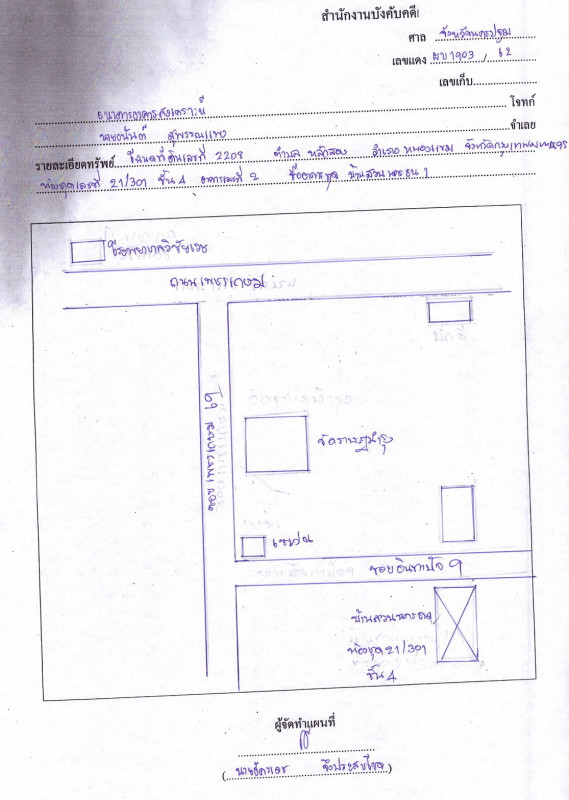 สำนักงานบังคับคดี
ศาล จังหวัดนครปฐม
เลขแดง ผบ 1903 / 62
เลขเก็บ
ธนาคารอาคารสงเคราะห์ โจทก์
นายอนันต์ สุพรรณแพง จำเลย
รายละเอียดทรัพย์ โฉนดที่ดินเลขที่ 2208 ตำบล หลักสอง อำเภอ หนองแขม จังหวัดกรุงเทพมหานคร
ห้องชุดเลขที่ 21/301 ชั้น 4 อาคารเลขที่ 2 ชื่ออาคารชุด บ้านสวนนครธน 1
โรงพยาบาลวิชัยเวช
ถนนเพชรเกษม
บิ๊กซี
ซอยเพชรเกษม 69
เซเว่น
ซอยอินทาปัจ 9
บ้านสวนนครธน
ห้องชุด 21/301
ชั้น 4
ผู้จัดทำแผนที่